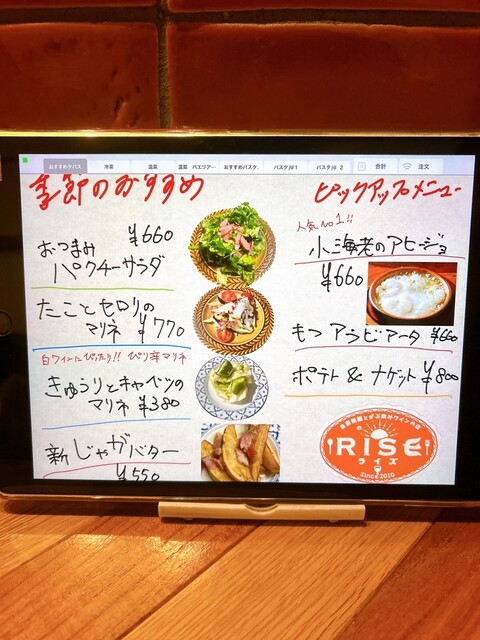 おすすめタパス
冷菜
温菜
温菜 パエリアー
おすすめパスタ
パスタ/II 1
パスタ/II 2
合計
注文
季節のおすすめ
おつまみ ¥660
パクチーサラダ
たことセロリの
マリネ ¥770
白ワインにぴったり!! ぴり辛マリネ
きゅうりとキャベツの
マリネ ¥380
新じゃがバター
¥550
ピックアップメニュー
人気No1!!
小海老のアヒージョ
¥660
もつアラビアータ ¥660
ポテト & ナゲット ¥800
RISE
ライズ
Since 2010